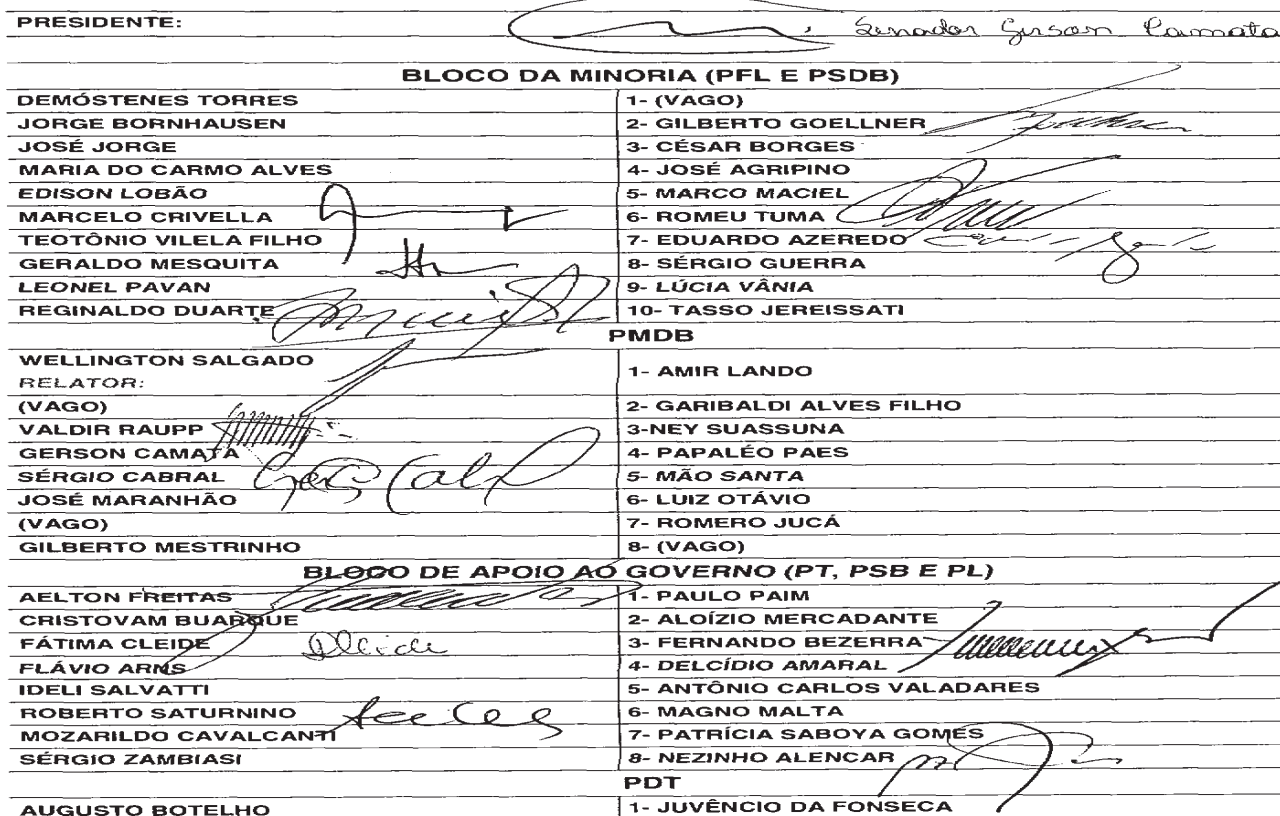 PRESIDENTE: Senador Gerson Camata
BLOCO DA MINORIA (PFL E PSDB)
DEMÓSTENES TORRES 1- (VAGO)
JORGE BORNHAUSEN 2- GILBERTO GOELLNER
JOSÉ JORGE 3- CÉSAR BORGES
MARIA DO CARMO ALVES 4- JOSÉ AGRIPINO
EDISON LOBÃO 5- MARCO MACIEL
MARCELO CRIVELLA 6- ROMEU TUMA
TEOTÔNIO VILELA FILHO 7- EDUARDO AZEREDO
GERALDO MESQUITA 8- SÉRGIO GUERRA
LEONEL PAVAN 9- LÚCIA VÂNIA
REGINALDO DUARTE 10- TASSO JEREISSATI
PMDB
WELLINGTON SALGADO
RELATOR: 1- AMIR LANDO
(VAGO) 2- GARIBALDI ALVES FILHO
VALDIR RAUPP 3-NEY SUASSUNA
GERSON CAMATA 4- PAPALÉO PAES
SÉRGIO CABRAL 5- MÃO SANTA
JOSÉ MARANHÃO 6- LUIZ OTÁVIO
(VAGO) 7- ROMERO JUCÁ
GILBERTO MESTRINHO 8- (VAGO)
BLOCO DE APOIO AO GOVERNO (PT, PSB E PL)
AELTON FREITAS 1- PAULO PAIM
CRISTOVAM BUARQUE 2- ALOÍZIO MERCADANTE
FÁTIMA CLEIDE 3- FERNANDO BEZERRA
FLÁVIO ARNS 4- DELCÍDIO AMARAL
IDELI SALVATTI 5- ANTÔNIO CARLOS VALADARES
ROBERTO SATURNINO 6- MAGNO MALTA
MOZARILDO CAVALCANTI 7- PATRÍCIA SABOYA GOMES
SÉRGIO ZAMBIASI 8- NEZINHO ALENCAR
PDT
AUGUSTO BOTELHO 1- JUVÊNCIO DA FONSECA